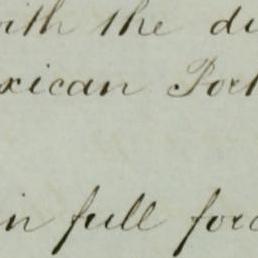 with the du
exican Port
in full forc